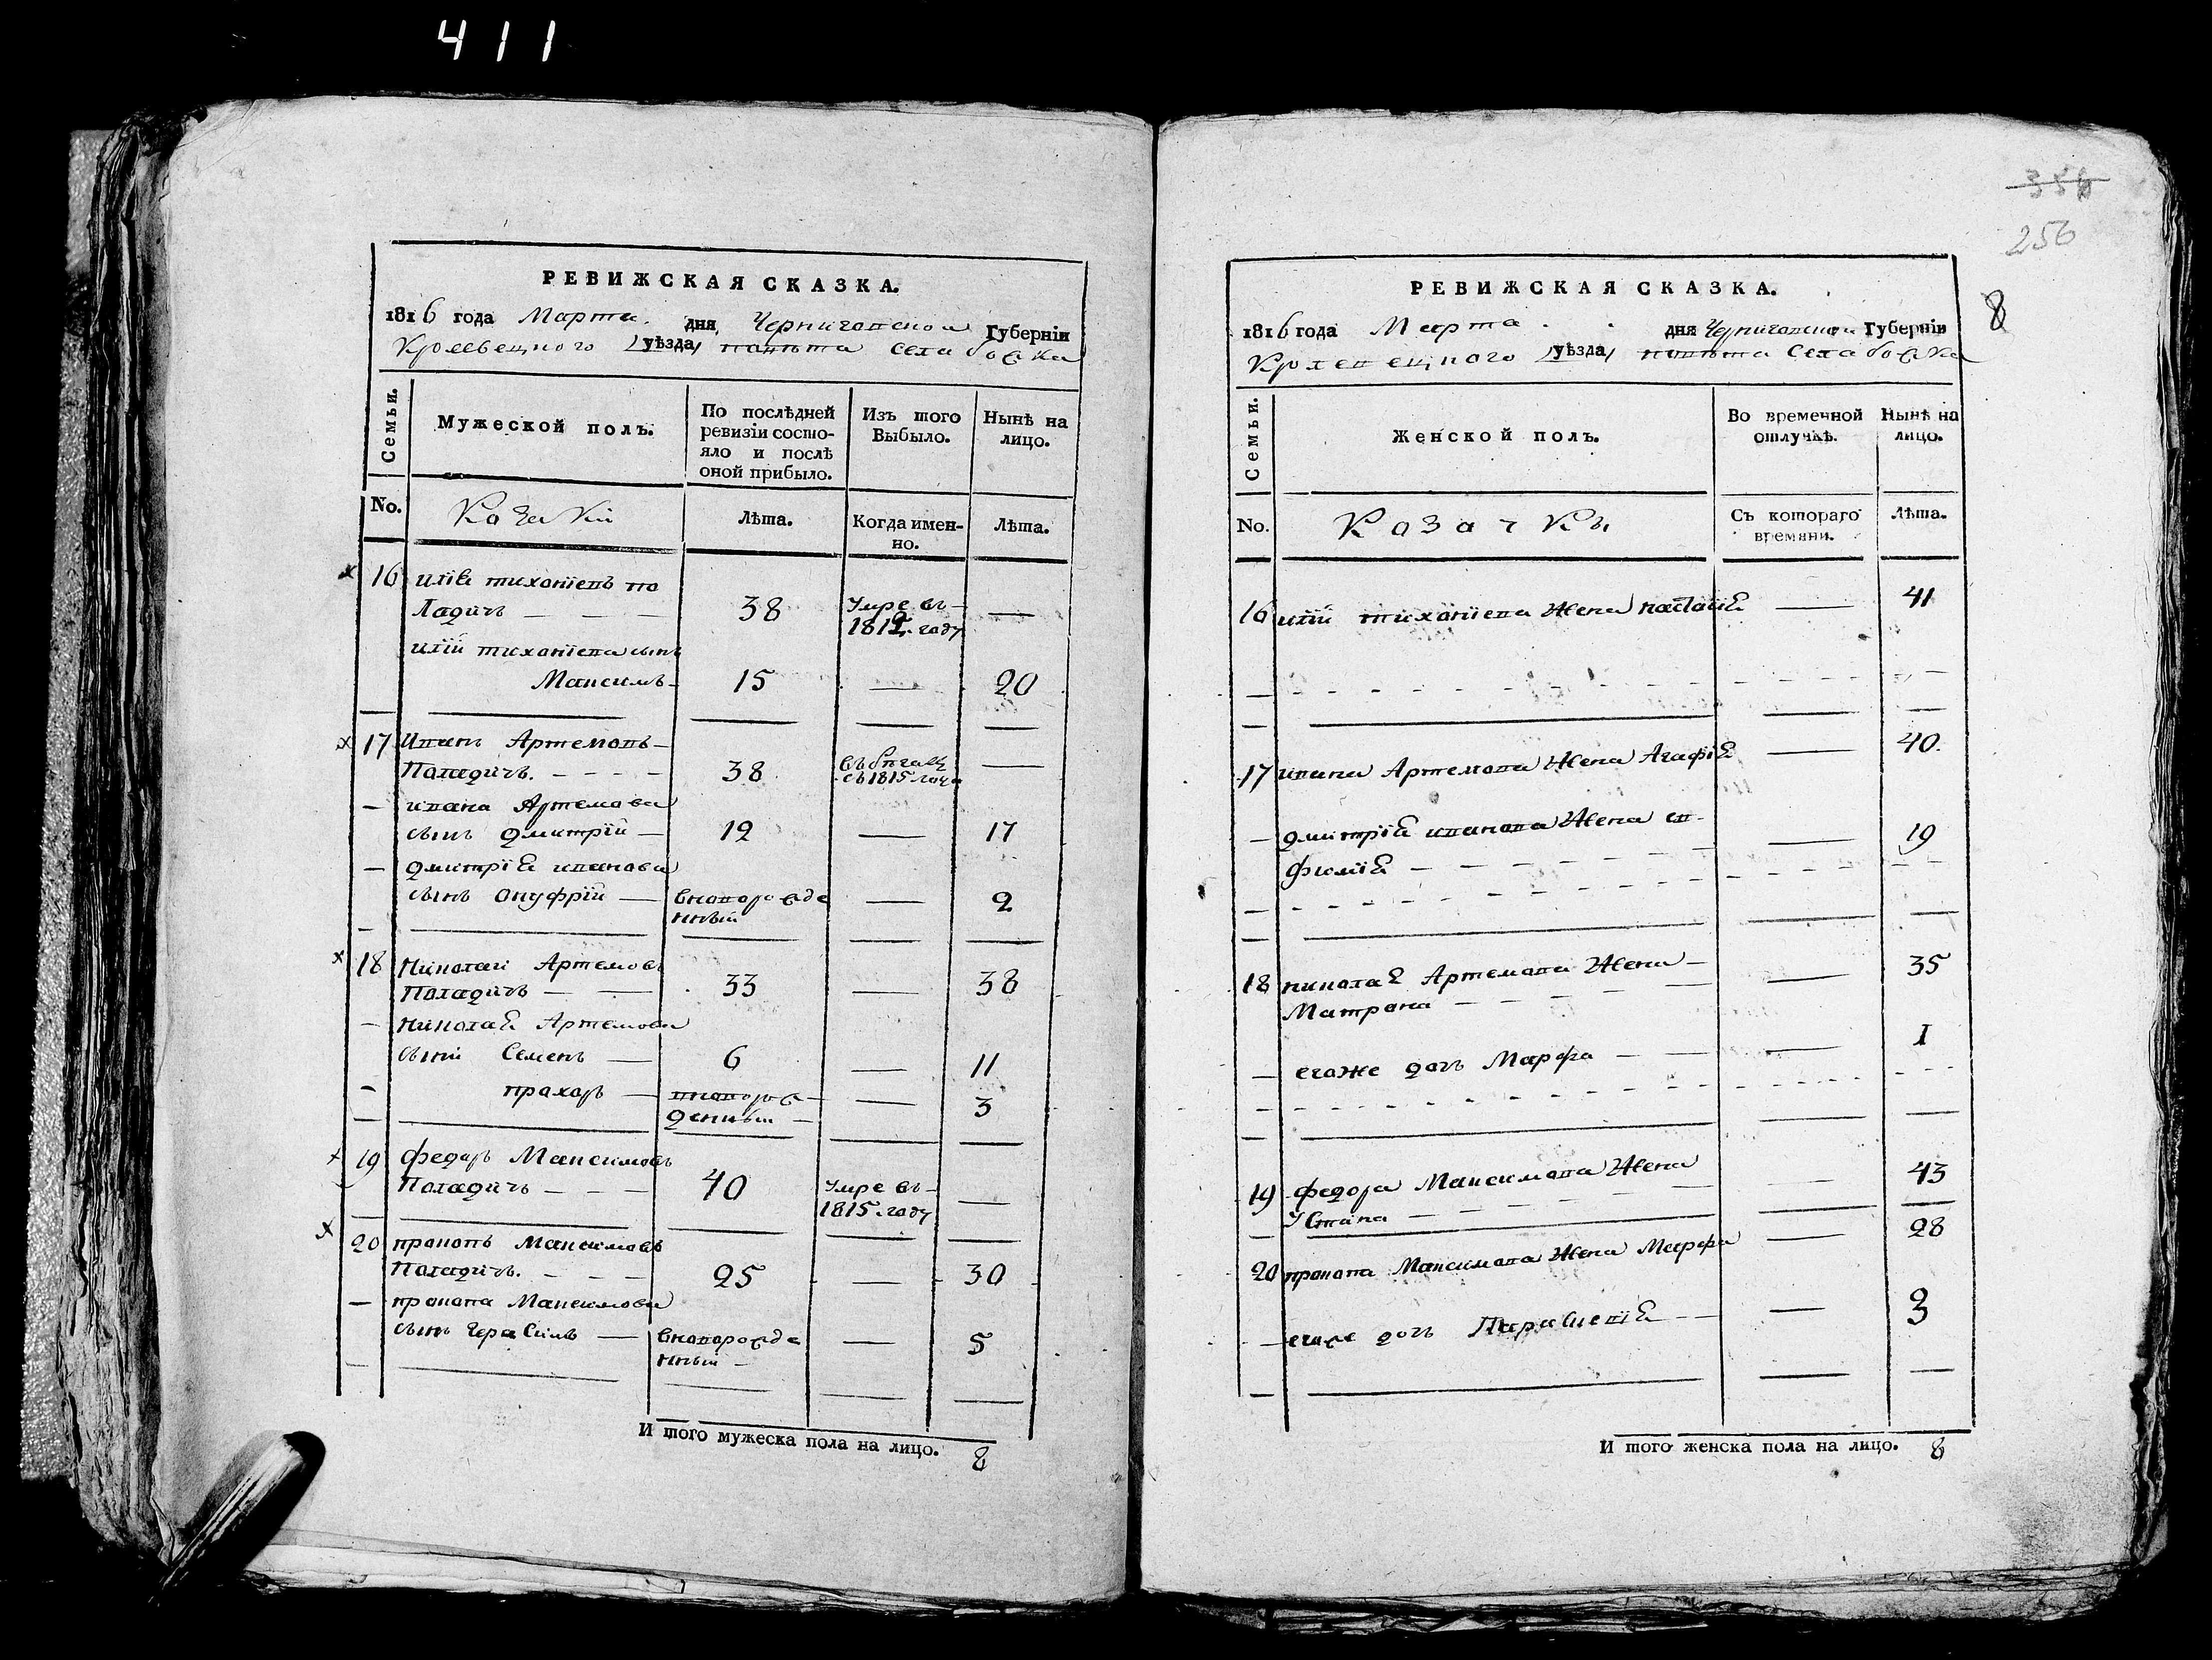 411
РЕВИЖСКАЯ СКАЗКА.
1816 года Марта дня Черниговской Губерніи
Кролевецкого уѣзда повѣта села
Семьи.
Мужеской полъ.
По послѣдней ревизіи состояло и послѣ оной прибыло.
Изъ того Выбыло.
Нынѣ на лицо.
No.
Козаки
Лѣта.
Когда именно.
Лѣта.
16 илія тихоніевъ по
ладичъ 38 Умре въ 1812 году
иліи тихоніева сынъ
Максимъ 15 20
17 Иванъ Артемовъ
Поладичъ. 38 въ бегахъ съ 1815 года
ивана Артемова
сынъ дмитрій 12 17
дмитрія иванова
сынъ онуфрій вноворожде
нный 2
18 Николай Артемовъ
Поладичъ 33 38
Николая Артемова
сыни Семенъ 6 11
прохоръ вноворож
денный 3
19 федоръ Максимовъ
Поладичъ 40 Умре въ 1815 году
20 прокопъ Максимовъ
Поладичъ. 25 30
прокопа Максимова
сынъ герасимъ вноворожде
нный 5
И того мужеска пола на лицо. 8
356
256
8
РЕВИЖСКАЯ СКАЗКА.
1816 года Марта дня Черниговской Губерніи
Кролевецкого уѣзда повѣта села
Семьи.
Женской полъ.
Во временной отлучкѣ.
Нынѣ на лицо.
No.
Козачки
Съ котораго времяни.
Лѣта.
16 иліи тихоніева жена настасія 41
17 ивана Артемова жена Агафія 40.
дмитрія иванова жена ев
фимія 19
18 николая Артемова жена 35
Матрона
егоже дочь Марфа 1
19 федора Максимова жена 43
Устина
20 прокопа Максимова жена Марфа 28
егоже дочь Парасковія 3
И того женска пола на лицо. 8